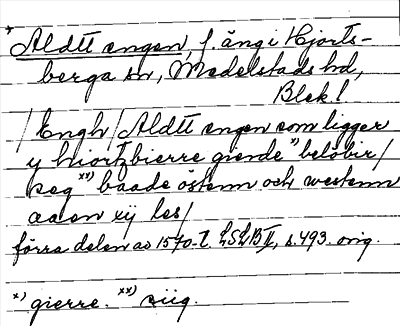 * Aldtt engen, f. äng i Hjorts-
berga sn, Medelstads hd,
Blek!
/Engh/Aldtt engen som ligger
y hiortzbierre giende x) belöbir/
seg xx) baade östenn och westenn
aaen xij les/
förra delen av 1570-t. LSLB II, s. 493. orig.
x) gierre. xx) siig.